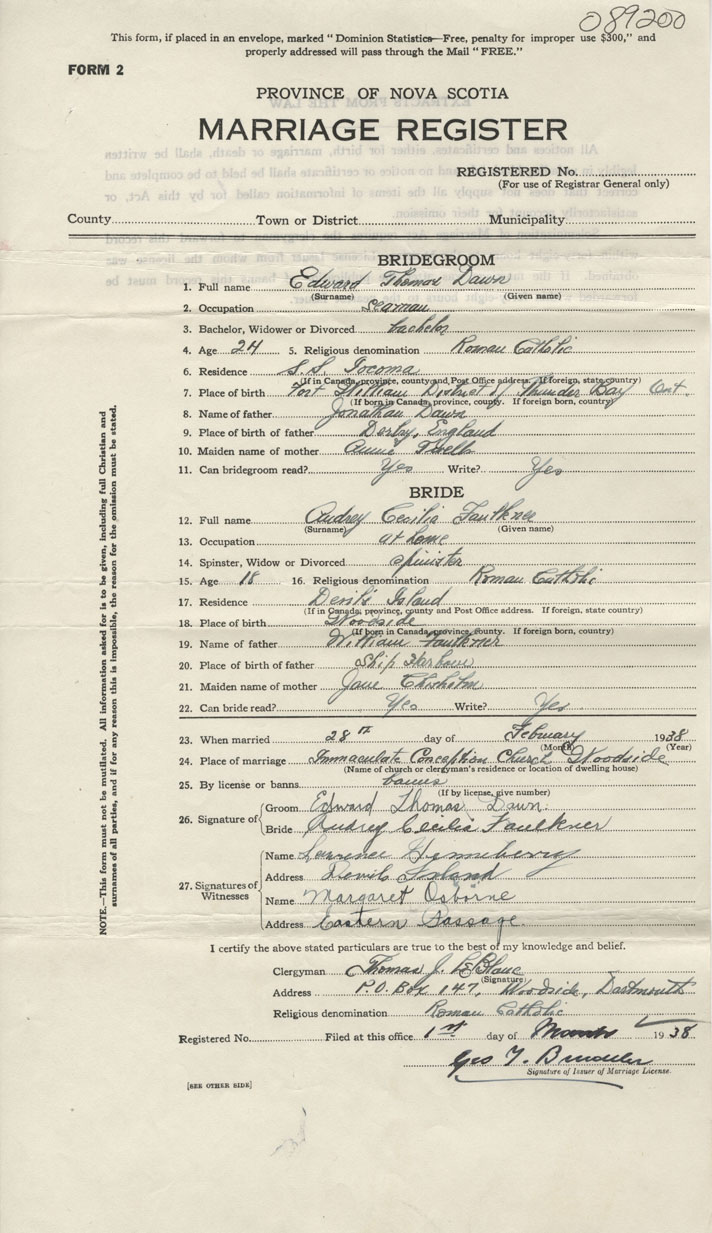 089200
This form, if placed in an envelope, marked "Dominion Statistics—Free, penalty for improper use $300," and
properly addressed will pass through the Mail "FREE."
FORM 2
PROVINCE OF NOVA SCOTIA
MARRIAGE REGISTER
REGISTERED No.
(For use of Registrar General only)
County Town or District Municipality
BRIDEGROOM
1. Full name Edward Thomas Dawn
(Surname) (Given name)
2. Occupation Seaman
3. Bachelor, Widower or Divorced bachelor
4. Age 24 5. Religious denomination Roman Catholic
6. Residence S.S. Iocoma
(If in Canada, province, county and Post Office address. If foreign, state country)
7. Place of birth Fort William District of Thunder Bay Ont.
(If born in Canada, province, county. If foreign born, country)
8. Name of father Jonathan Dawn
9. Place of father Derby, England
10. Maiden name of mother Annie
11. Can bridegroom read? Yes Write? Yes
BRIDE
12. Full name Audrey Cecilia Faulkner
(Surname) (Given name)
13. Occupation at home
14. Spinster, Widow or Divorced spinster
15. Age 18 16. Religious denomination Roman Catholic
17. Residence Devil's Island
(If in Canada, province, county and Post Office address. If foreign, state country)
18. Place of birth Woodside
(If born in Canada, province, county. If foreign born, country)
19. Name of father William Faulkner
20. Place of birth of father Ship Harbour
21. Maiden name of mother Jane Chisholm
22. Can bride read? Yes Write? Yes
23. When married 28th day of February 1938
(Month) (Year)
24. Place of marriage Immaculate Conception Church Woodside
(Name of church or clergyman's residence or location of dwelling house)
25. By license or banns banns
(If by license, give number)
26. Signature of Groom Edward Thomas Dawn.
Bride Audrey Cecilia Faulkner
27. Signatures of Witnesses
Name Lawrence Henneberry
Address Devils Island
Name Margaret Osborne
Address Eastern Passage.
I certify the above stated particulars are true to the best of my knowledge and belief.
Clergyman Thomas J. LeBlanc
(Signature)
Address P.O. Box 147, Woodside, Dartmouth
Religious denomination Roman Catholic
Registered No. Filed at this office 1st day of March 1938
Geo
Signature of Issuer of Marriage License.
[SEE OTHER SIDE]
NOTE.—This form must not be mutilated. All information asked for is to be given, including full Christian and
surnames of all parties, and if for any reason this is impossible, the reason for the omission must be stated.